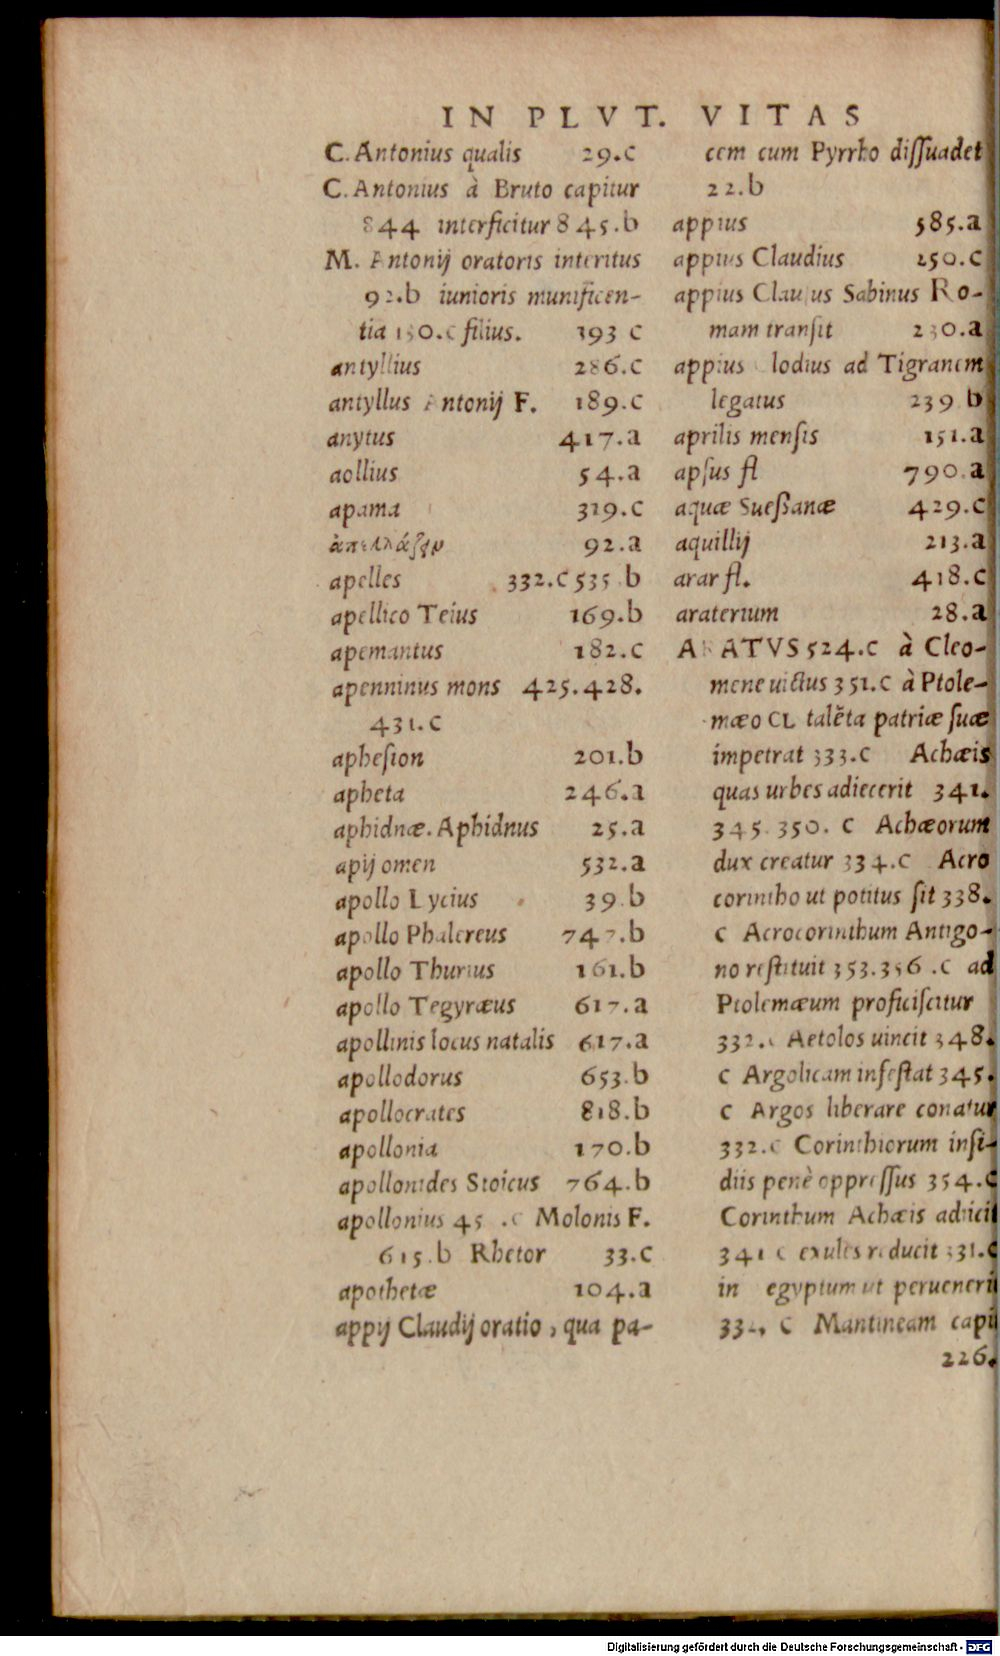 IN PLVT. VITAS
C. Antonius qualis 29.c
C. Antonius à Bruto capitur
844 interficitur 845.b
M. Antonij oratoris interitus
92.b iunioris munificen-
tia 150.c filius. 393 c
antyllius 286.c
antyllus Antonij F. 189.c
anytus 417.a
aollius 54.a
apama 319.c
92.a
apelles 332.c 535 b
apellico Teius 169.b
apemantus 182.c
apenninus mons 425.428.
431.c
aphesion 201.b
apheta 246.a
aphidnæ. Aphidnus 25.a
apij omen 532.a
apollo Lycius 39.b
apollo Phalereus 747.b
apollo Thurius 161.b
apollo Tegyræus 617.a
apollinis locus natalis 617.a
apollodorus 653.b
apollocrates 818.b
apollonia 170.b
apollonides Stoicus 764.b
apollonius 45 .c Molonis F.
615.b Rhetor 33.c
apothetæ 104.a
appij Claudij oratio, qua pa-
cem cum Pyrrho dissuadet
22.b
appius 585.a
appius Claudius 250.c
appius Clausus Sabinus Ro-
mam transit 230.a
appius lodius ad Tigranem
legatus 239 b
aprilis mensis 151.a
apsus fl 790.a
aquæ Sueßanæ 429.c
aquillij 213.a
arar fl. 418.c
araterium 28.a
ARATVS 524.c à Cleo-
mene uictus 351.c à Ptole-
mæo CL talẽta patriæ suæ
impetrat 333.c Achæis
quas urbes adiecerit 341.
345.350. c Achæorum
dux creatur 334.c Acro
corintho ut potitus sit 338.
c Acrocorinthum Antigo-
no restituit 353.356.c ad
Ptolemæum proficiscitur
332.c Aetolos uincit 348.
c Argolicam infestat 345.
c Argos liberare conatur
332.c Corinthiorum insi-
diis penè oppressus 354.c
Corinthum Achæis adiicit
341 c exules reducit 331.c
in egyptum ut peruenerit
334, c Mantineam capit
226.
Digitalisierung gefördert durch die Deutsche Forschungsgemeinschaft - DFG